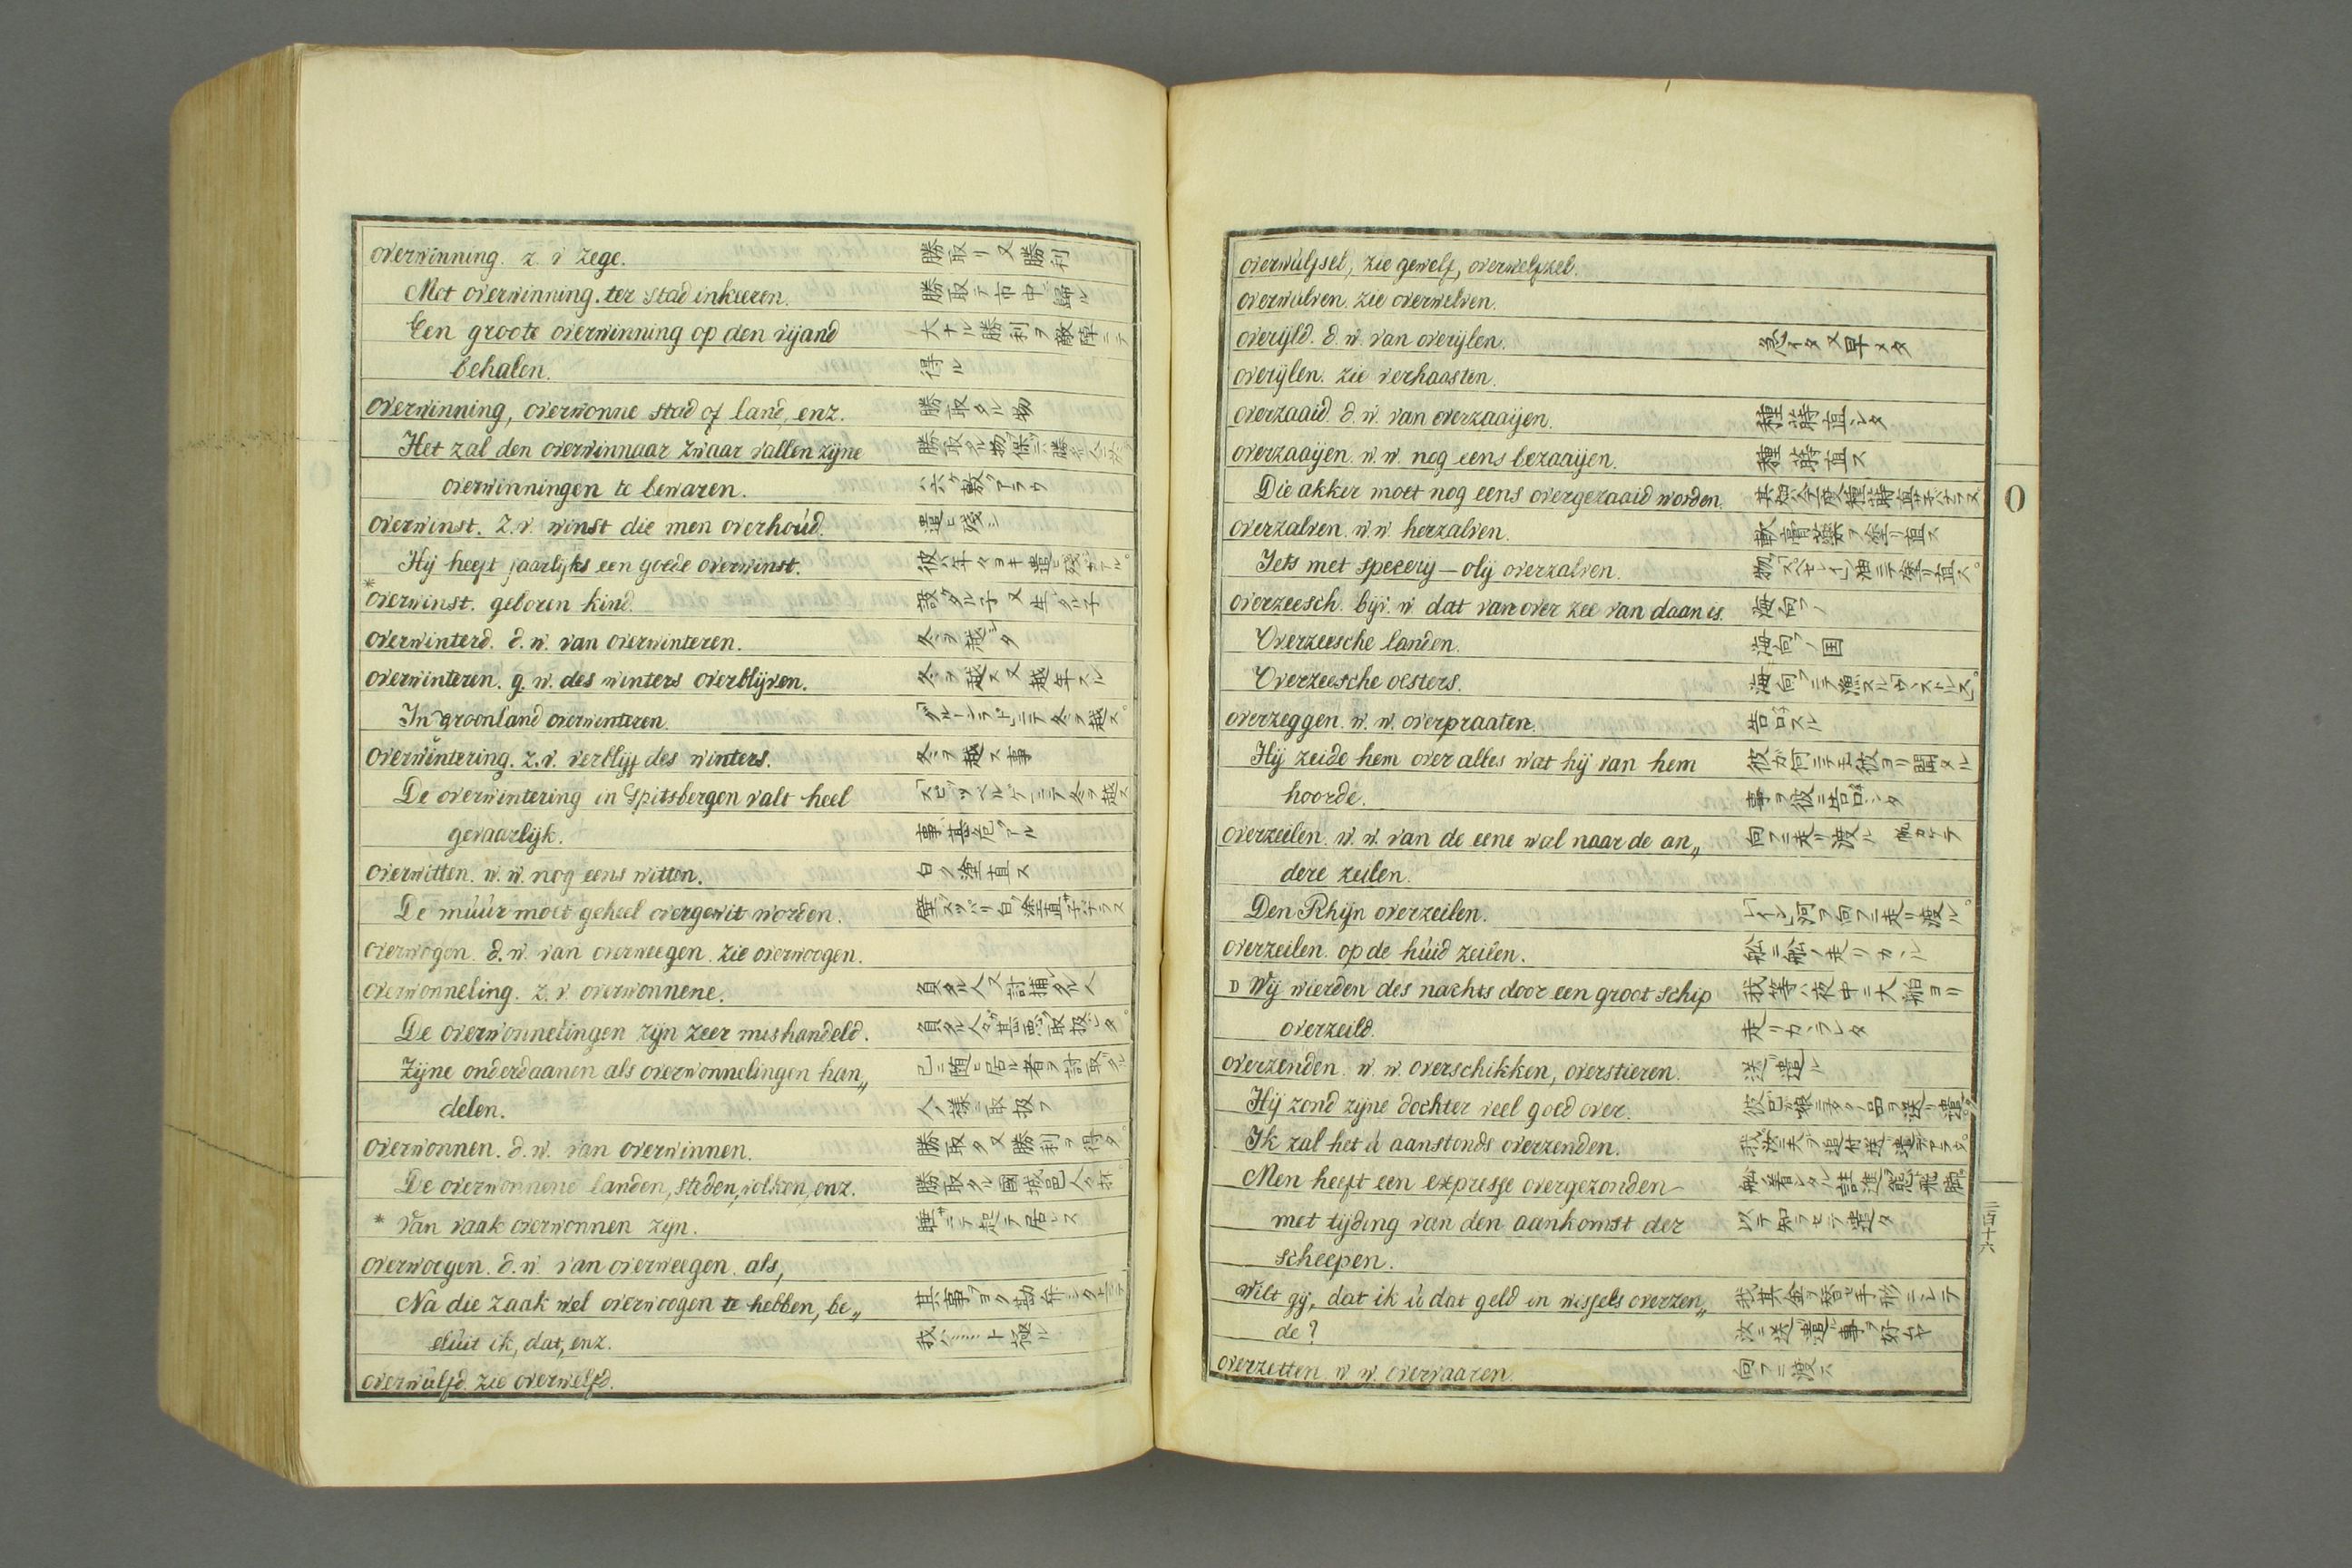 overwinning. z. v. zege. 勝取リ又勝利
Met overwinning. ter stad inkeeren. 勝取テ市中ニ歸ル
Een groote overwinning op den vijand 大ナル勝利ヲ敵陣ニテ
behalen. 得ル
overwinning, overwonne stad of land, enz. 勝取タル物
Het zal den overwinnaar zwaar vallen zijne
overwinningen te bewaren.
overwinst. z. v. winst die men overhoúd. 遣ヒ殘シ
Hij heeft jaarlijks een goede overwinst.
* overwinst. geboren kind.
overwinterd. d. w. van overwinteren. 冬ヲ越シタ
overwinteren. g. w. des winters overblijven. 冬ヲ越ス又越年スル
In groonland overwinteren.
overwintering. z. v. verblijf des winters. 冬ヲ越ス事
De overwintering in Spitsbergen valt heel
gevaarlijk. 事甚危フアル
overwitten. w. w. nog eens witten. 白ク塗直ス
De múúr moet geheel overgewit worden.
overwogen. d. w. van overweegen. zie overwoogen.
overwonneling. z. v. overwonnene.
De overwonnelingen zijn zeer mishandeld.
Zijne onderdaanen als overwonnelingen han„
delen. 人ノ様ニ取扱フ
overwonnen. d. w. van overwinnen. 勝取タ又勝利ヲ得タ
De overwonnene landen, steden, volken, enz.
* Van vaak overwonnen zijn.
overwoogen. d. w. van overweegen. als,
Na die zaak wel overwoogen te hebben, be„
slúit ik, dat, enz. 我ハ……ト極ル
overwúlfd. zie overwelfd.
overwúlfsel, zie gewelf, overwelfzel.
overwulven. zie overwelven.
overijld. d. w. van overijlen. 急イタ又早メタ
overijlen. zie verhaasten.
overzaaid. d. w. van overzaaijen. 種蒔直シタ
overzaaijen. w. w. nog eens bezaaijen. 種蒔直ス
Die akker moet nog eens overgezaaid worden.
overzalven. w. w. herzalven. 軟膏藥ヲ塗リ直ス
Iets met specerij—olij overzalven.
overzeesch. bijv. w. dat van over zee van daan is. 海向フノ
Overzeesche landen. 海向フノ国
Overzeesche oesters.
overzeggen. w. w. overpraaten. 告口スル
Hij zeide hem over alles wat hij van hem
hoorde. 事ヲ彼ニ告口シタ
overzeilen. w. w. van de eene wal naar de an„ 向フニ走リ渡ル
dere zeilen.
Den Rhijn overzeilen.
overzeilen. op de húid zeilen.
D Wij wierden des nachts door een groot schip 我等ハ夜中ニ大船ヨリ
overzeild.
overzenden. w. w. overschikken, overstieren. 送リ遣ル
Hij zond zijne dochter veel goed over.
Ik zal het ú aanstonds overzenden.
Men heeft een expresse overgezonden
met tijding van den aankomst der
scheepen.
Wilt gij, dat ik ú dat geld in wissels overzen„
de?
overzetten. w. w. overvaaren. 向フニ渡ス
O